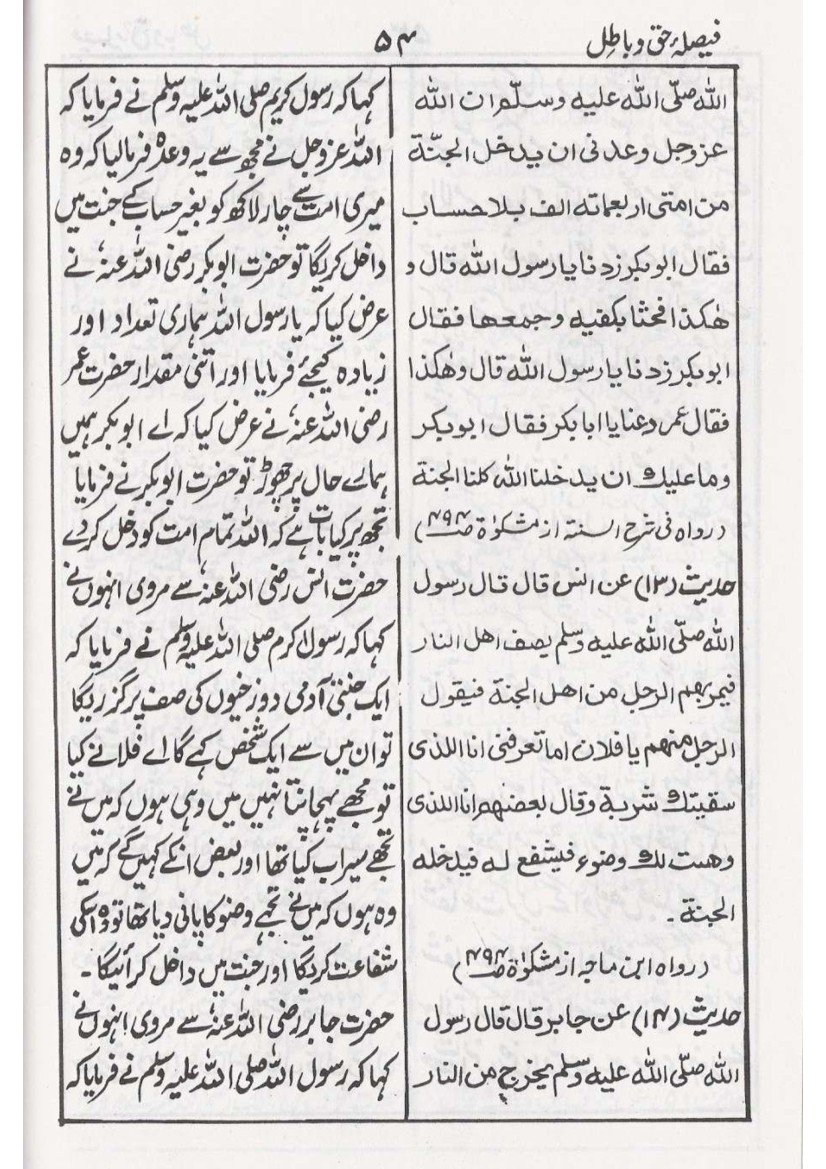 فیصلۂ حق و باطل
۵۴
اللہ صلّی اللہ علیہ وسلّم ان اللہ
عزوجل وعدنی ان یدخل الجنّة
من امتی اربعمائة الف بلا حساب
فقال ابوبکر زدنا یا رسول اللہ قال و
ھٰکذا فحثا بکفیہ وجمعھا فقال
ابوبکر زدنا یا رسول اللہ قال وھٰکذا
فقال عمر دعنا یا ابابکر فقال ابوبکر
وما علیك ان یدخلنا اللہ کلنا الجنة
(رواہ فی شرح السنة از مشکوٰة ص۴۹۴)
حدیث (۱۳) عن انس قال قال رسول
اللہ صلّی اللہ علیہ وسلم یصف اھل النار
فیمر بھم الرجل من اھل الجنة فیقول
الرجل منھم یا فلان اما تعرفنی انا اللذی
سقیتك شربة وقال بعضھم انا اللذی
وھبت لك وضوء فیشفع لہ فیدخلہ
الجنة۔
(رواہ ابن ماجہ از مشکوٰة ص۴۹۴)
حدیث (۱۴) عن جابر قال قال رسول
اللہ صلّی اللہ علیہ وسلم یخرج من النار
کہا کہ رسول کریم صلی اللہ علیہ وسلم نے فرمایا کہ
اللہ عزوجل نے مجھ سے یہ وعدہ فرمالیا کہ وہ
میری امت سے چار لاکھ کو بغیر حساب کے جنت میں
داخل کریگا تو حضرت ابوبکر رضی اللہ عنہٗ نے
عرض کیا کہ یا رسول اللہ ہماری تعداد اور
زیادہ کیجئے فرمایا اور اتنی مقدار حضرت عمر
رضی اللہ عنہٗ نے عرض کیا کہ اے ابوبکر ہمیں
ہمارے حال پر چھوڑ تو حضرت ابوبکر نے فرمایا
تجھ پر کیا بات ہے کہ اللہ تمام امت کو دخل کردے
حضرت انس رضی اللہ عنہٗ سے مروی انہوں نے
کہا کہ رسول اکرم صلی اللہ علیہ وسلم نے فرمایا کہ
ایک جنتی آدمی دوزخیوں کی صف پر گزریگا
تو ان میں سے ایک شخص کہے گا اے فلانے کیا
تو مجھے پہچانتا نہیں میں وہی ہوں کہ میں نے
تجھے سیراب کیا تھا اور بعض انکے کہیں گے کہ میں
وہ ہوں کہ میں نے تجھے وضو کا پانی دیا تھا تو وہ اسکی
شفاعت کردیگا اور جنت میں داخل کرائیگا۔
حضرت جابر رضی اللہ عنہٗ سے مروی انہوں نے
کہا کہ رسول اللہ صلی اللہ علیہ وسلم نے فرمایا کہ